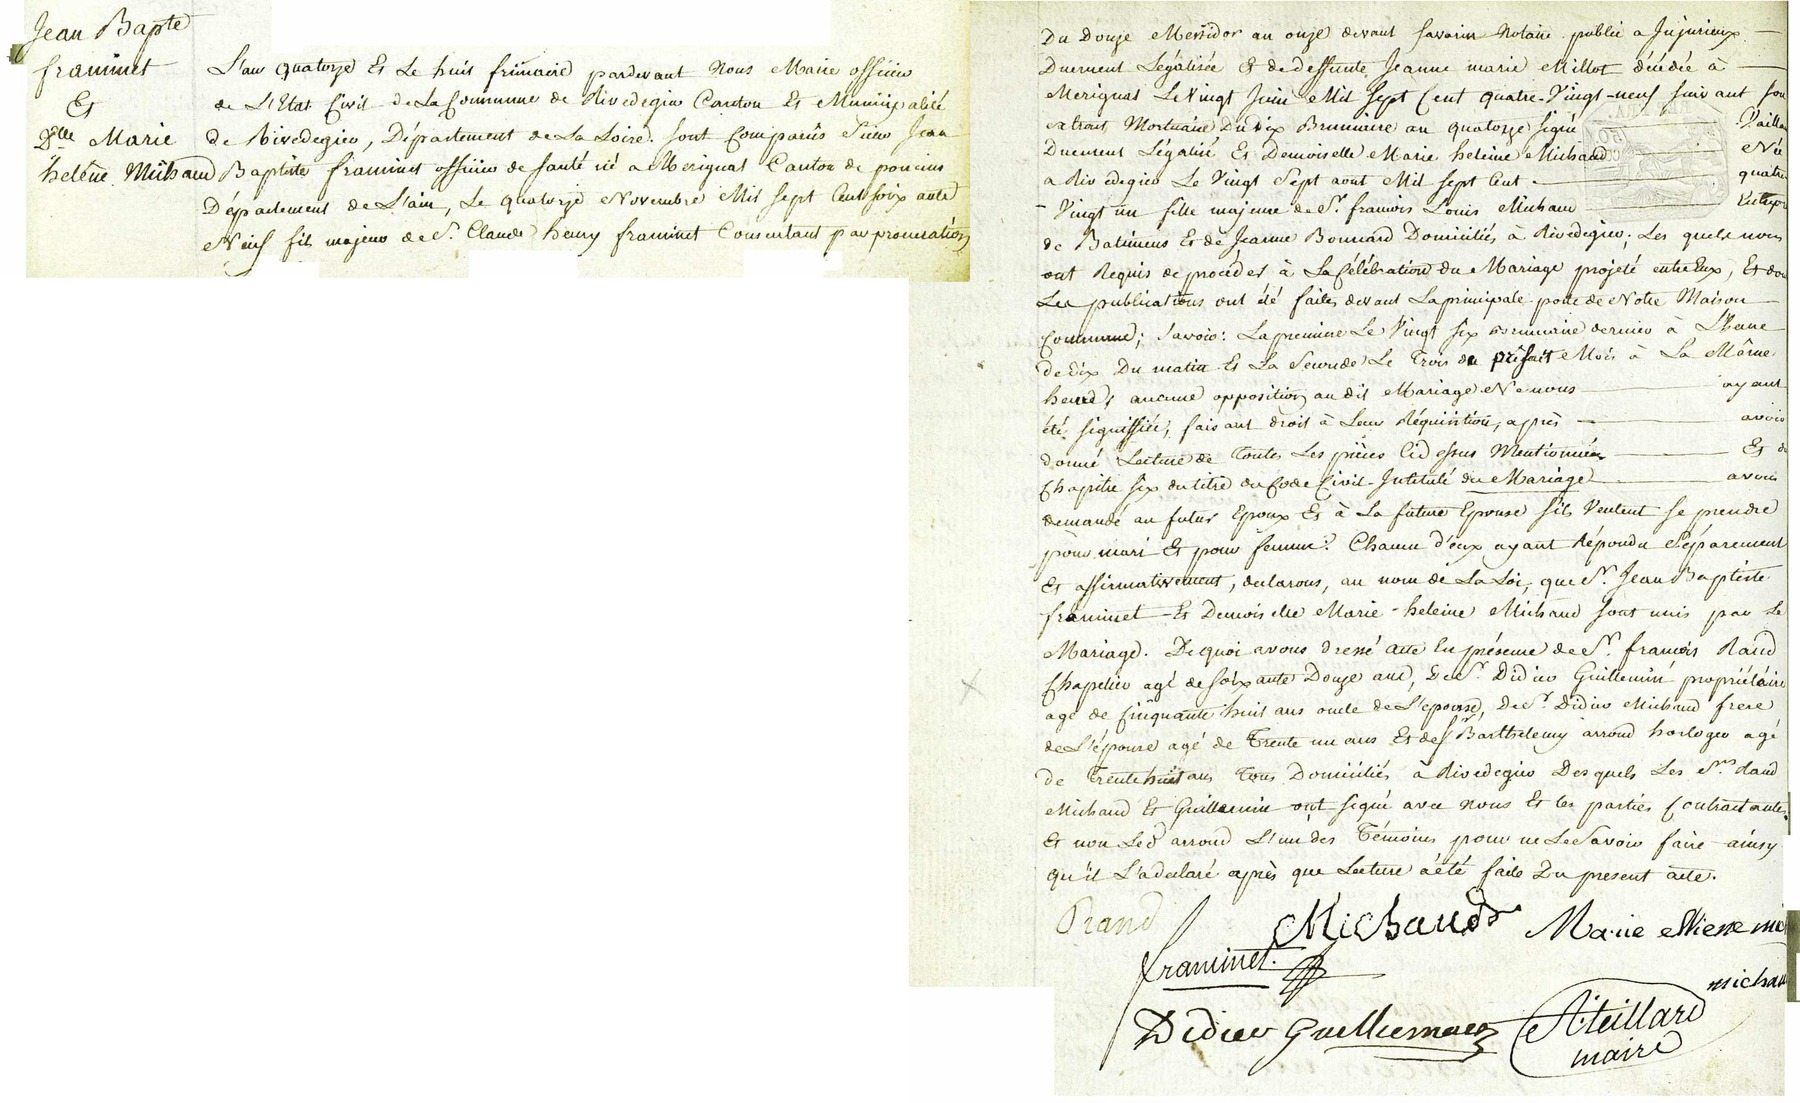 Jean Bapte
framinet
Et
Dlle Marie
helène Michaud
L'an quatorze Et Le huit frimaire pardevant Nous Maire officier
de L'Etat Civil de La Commune de Rivedegier Canton Et Municipalité
de Rivedegier, Département de La Loire. sont Comparûs Sieur Jean
Baptiste framinet officier de santé né a Merignat Canton de poncins
Département de L'ain, Le quatorze Novembre Mil sept Cent soixante
Neuf fils majeur de Sr. Claude henry framinet Consentant par procuration
Du Douze Messidor an onze devant savarin Notaire public a Jujurieux
Duement Légalisée Et de deffunte Jeanne marie Millot décédée à
Merignat Le Vingt Juin Mil Sept Cent quatre-Vingt-neuf suivant son
extrait Mortuaire Du dix Brumaire an quatorze signé Vaillan
Duement Légalisé Et Demoiselle Marie heleine Michaud Née
a Rivedegier Le Vingt Sept aout Mil sept Cent quatre
Vingt un fille majeure de Sr. francois Louis Michaud Entrepr
de Batimens Et de Jeanne Bonnard Domiciliés à Rivedegier; Les quels nous
ont Requis de procéder à La Célébration du Mariage projeté entre Eux, Et don
Les publications ont été faites devant La principale porte de Notre Maison
Commune; Savoir: La premiere Le Vingt six brumaire dernier à L'heure
de Dix Du matin Et La Seconde Le Trois du présent Mois à La Même
heure; aucune opposition au dit Mariage Ne nous ayant
été signiffiée, faisant droit à Leur Réquisition, après avoir
donné Lecture de Toutes Les pièces Cidessus Mentionnées Et du
Chapitre six du titre du Code Civil Intitulé du Mariage avoir
demandé au futur Epoux Et à La future Epouse s'ils Veulent se prendre
pour mari Et pour femme? Chacun d'eux ayant Répondu Séparement
Et affirmativement, déclarons, au nom de La Loi, que Sr. Jean Baptiste
framinet Et Demoiselle Marie-heleine Michaud sont unis par Le
Mariage. De quoi avons dressé acte En présence de Sr. francois Raud
Chapelier agé de soixante Douze ans, De Sr. Didier Guillemin propriétaire
agé de Cinquante huit ans oncle de L'epouse, De Sr. Didier Michaud frere
de L'épouse agé de Trente un ans Et de Sr Barthelemy arroud horloger agé
de Trente huit ans Tous Domiciliés à Rivedegier Desquels Les Srs. Raud
Michaud Et Guillemin ont signé avec Nous Et les parties Contractantes
Et non Led. arroud L'un des Témoins pour ne Le Savoir faire ainsy
qu'il L'a declaré après que Lecture a été faite Du present acte.
Michaud Marie
framinet
micha
Didier Guillemin A. teillard
maire